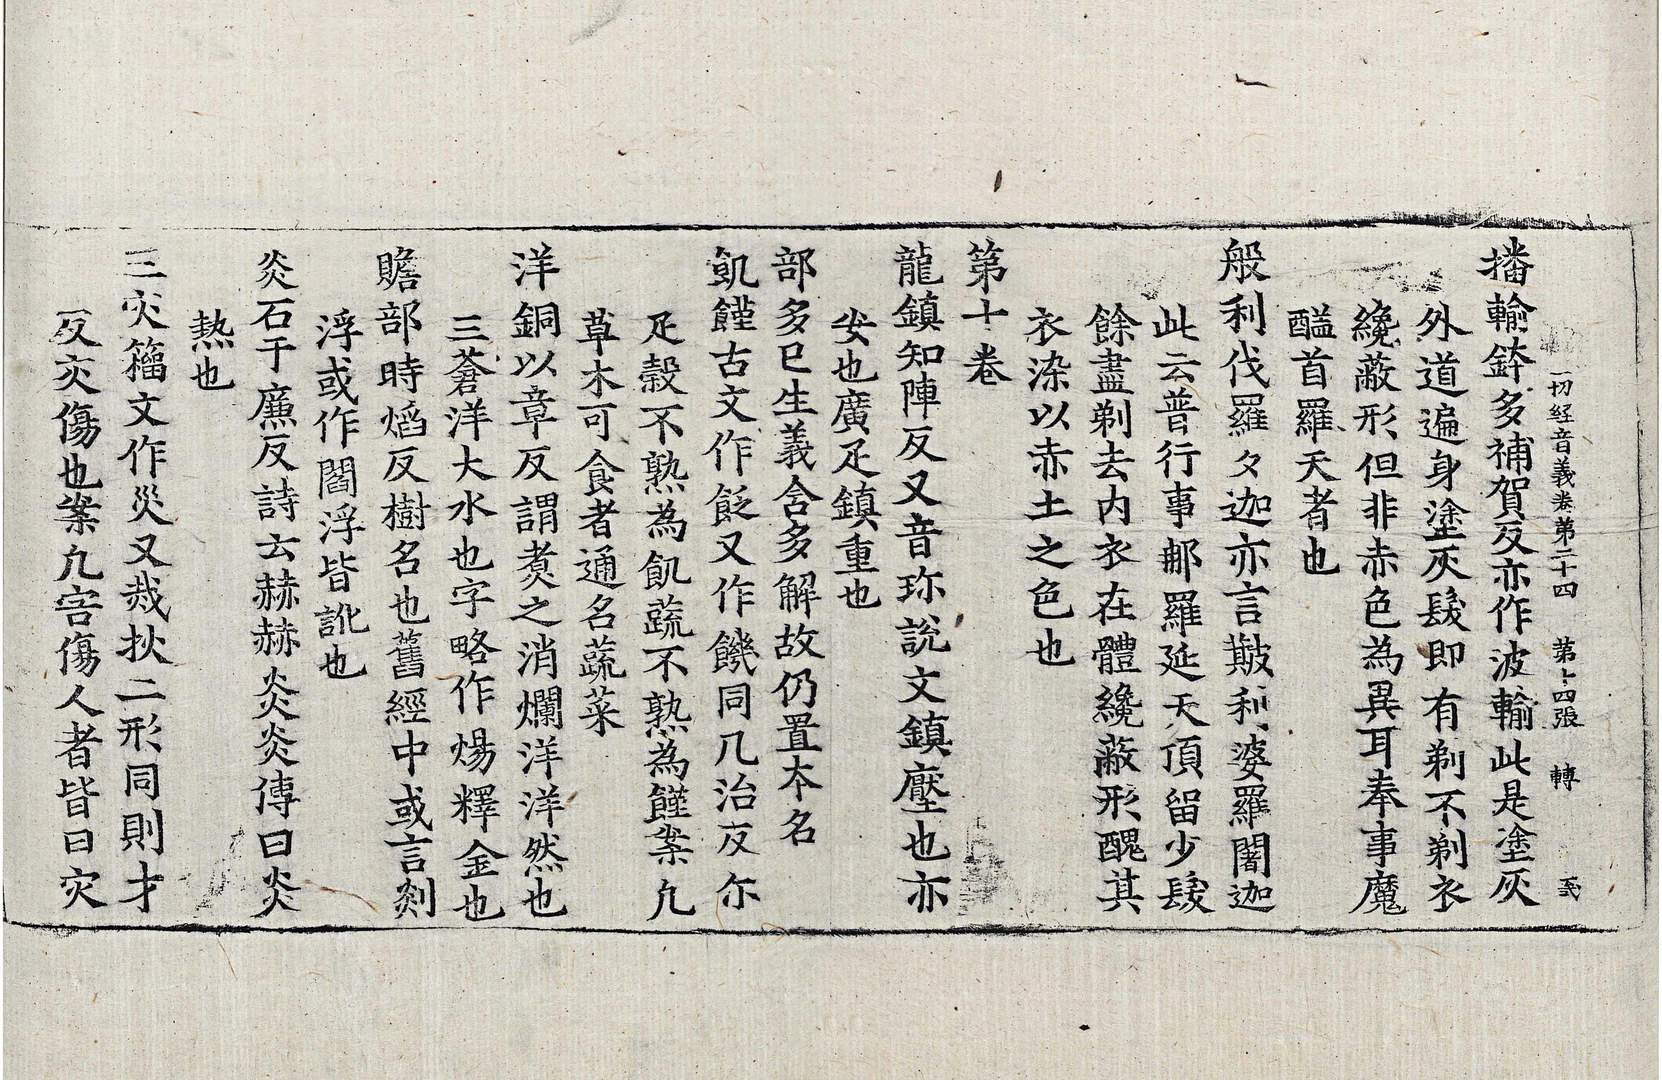 一切経音義卷第二十四　第十四張　轉
播輸鉢多補賀反亦作波輸此是塗灰
外道遍身塗灰髮即有剃不剃衣
纔蔽形但非赤色為異耳奉事魔
醯首羅天者也
般利伐羅多迦亦言簸利婆羅闍迦
此云普行事那羅延天頂留少髮
餘盡剃去內衣在體纔蔽形醜其
衣染以赤土之色也
第十卷
龍鎮知陣反又音珎說文鎮壓也亦
安也廣疋鎮重也
部多已生義含多解故仍置本名
飢饉古文作飪又作饑同几治反尒
疋穀不熟為飢蔬不熟為饉案凢
草木可食者通名蔬菜
洋銅以章反謂煑之消爛洋洋然也
三蒼洋大水也字略作煬釋金也
贍部時熖反樹名也舊經中或言剡
浮或作閻浮皆訛也
炎石于廉反詩云赫赫炎炎傳曰炎
熱也
三灾籀文作災又烖扻二形同則才
反灾傷也案凢害傷人者皆曰灾